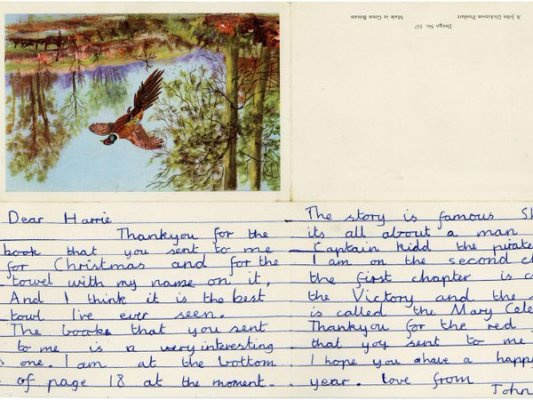 A John Dickinson Product
Design No. 337
Made in Great Britain
Dear Harrie
Thankyou for the
book that you sent to me
for Christmas and for the
towel with my name on it,
And I think it is the best
towl I've ever seen.
The booke that you sent
to me is a very interesting
one. I am at the bottom
of page 18 at the moment.
The story is famous Sh
its all about a man
Captain kidd the pirate
I am on the second ch
the first chapter is c
the Victory and the s
is called the Mary Cele
Thankyou for the red
that you sent to me
I hope you ahave a happ
year. love from
John